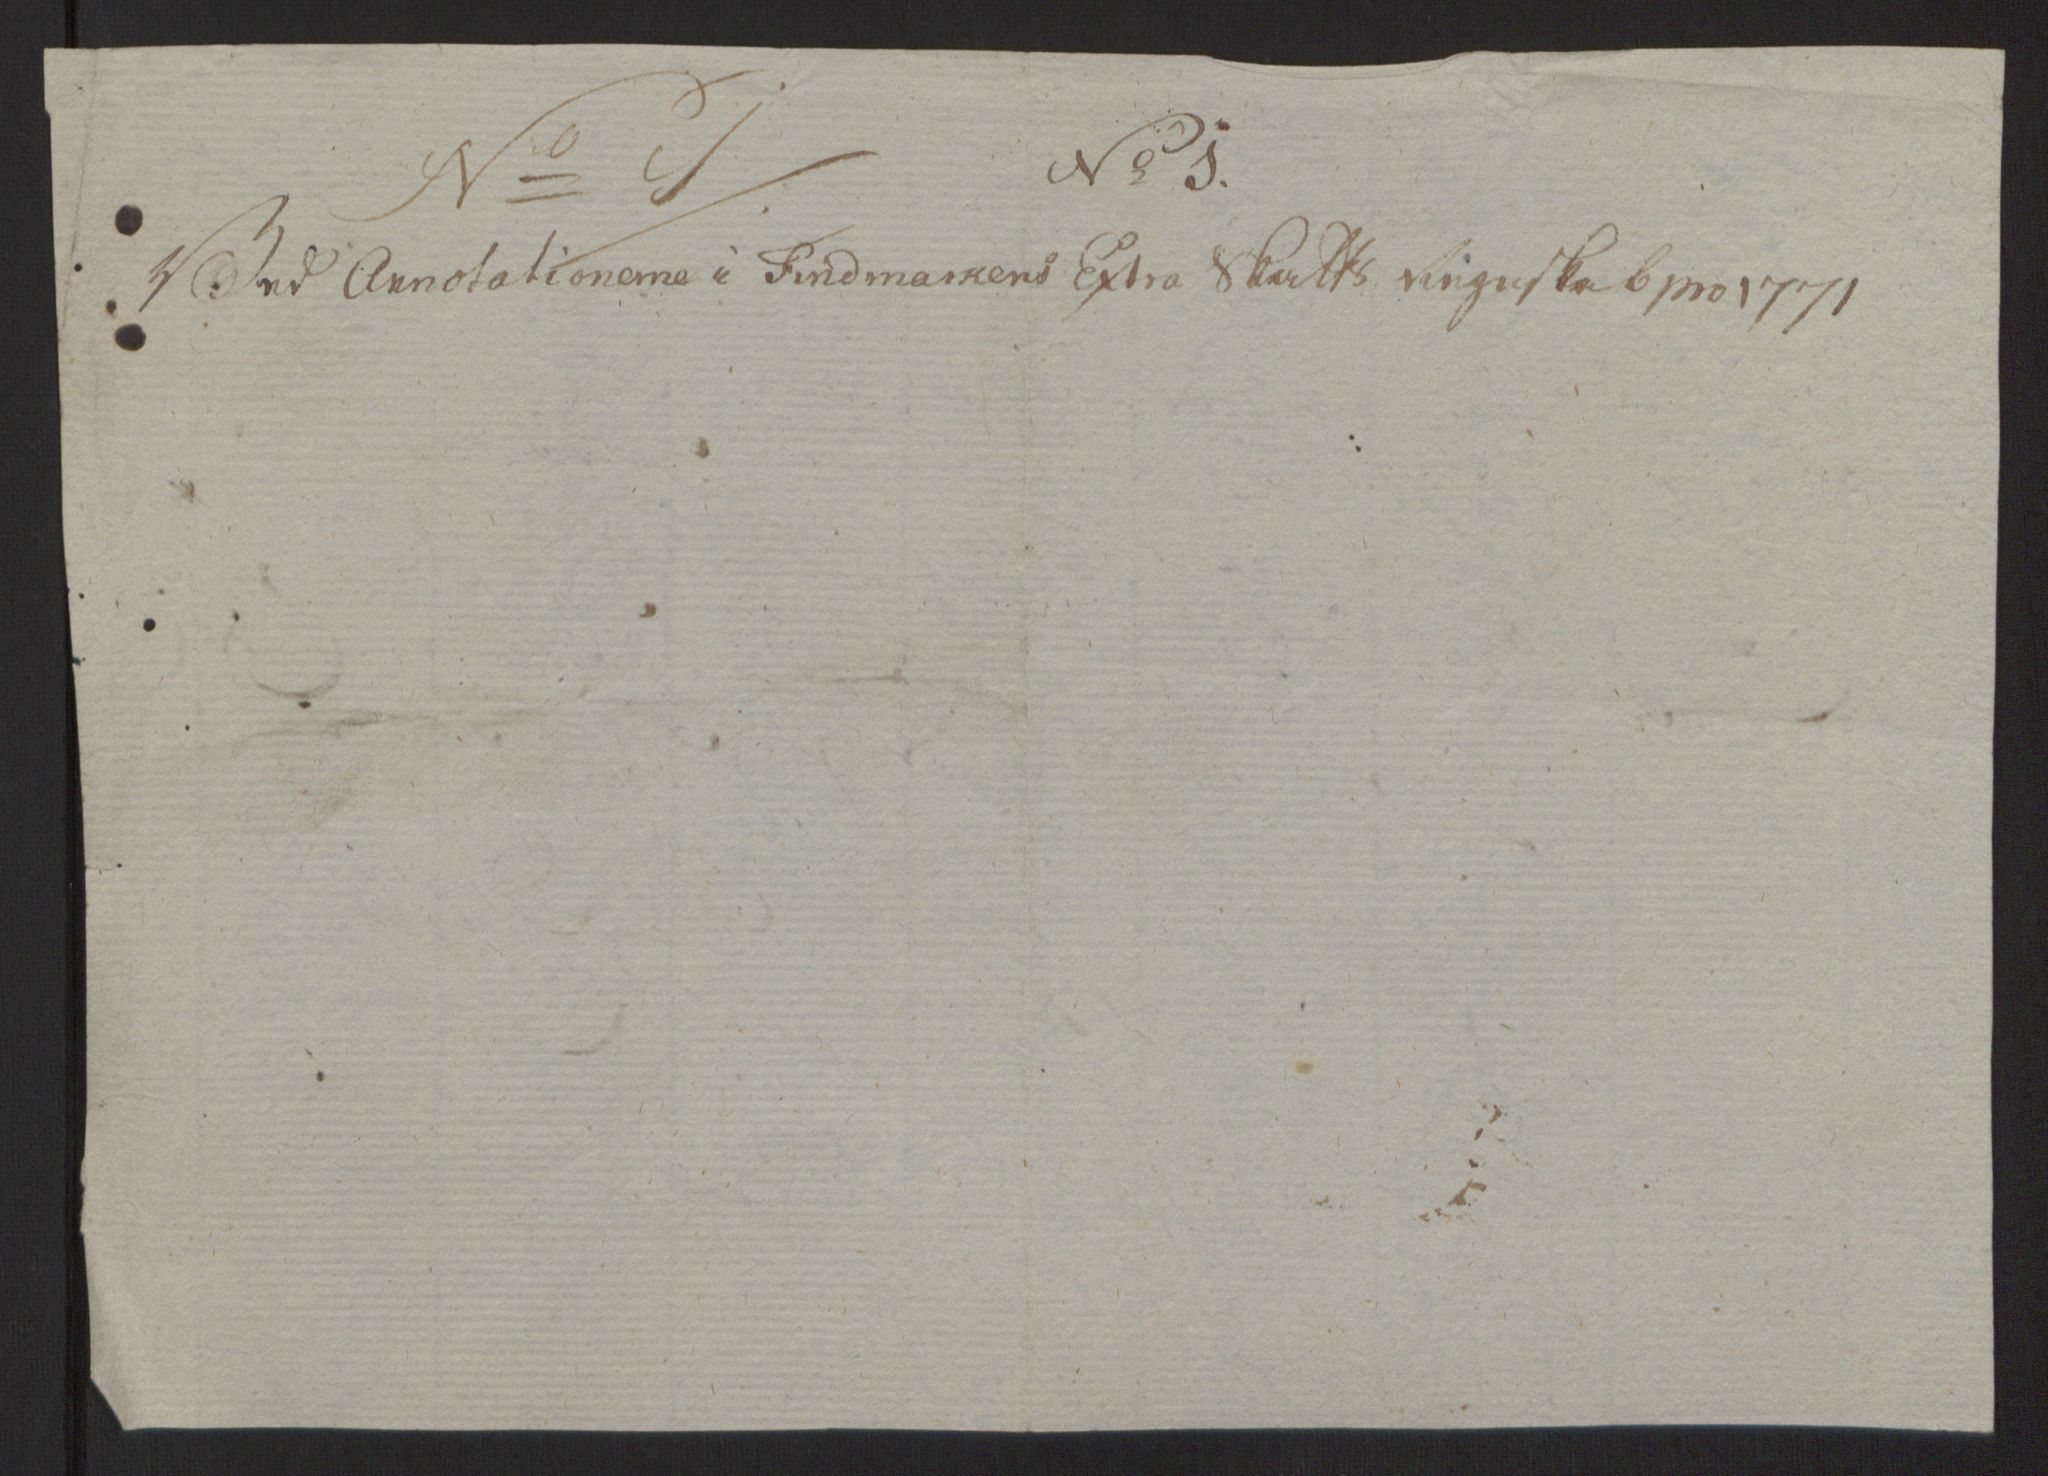 No 1. No 1.
Ved Annotationerne i Findmarkens Extra Skatts Regnskab pro 1771